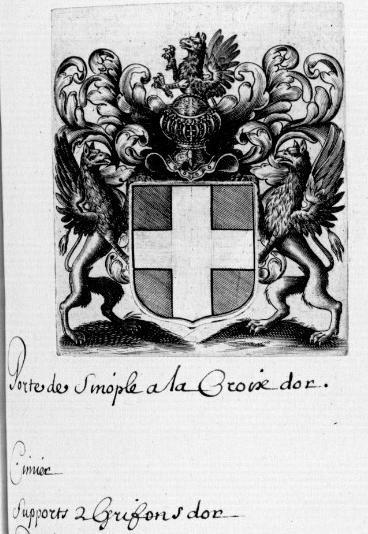 Porte de Sinople a la Croix dor.
Cimier
Supports 2 Grifons dor